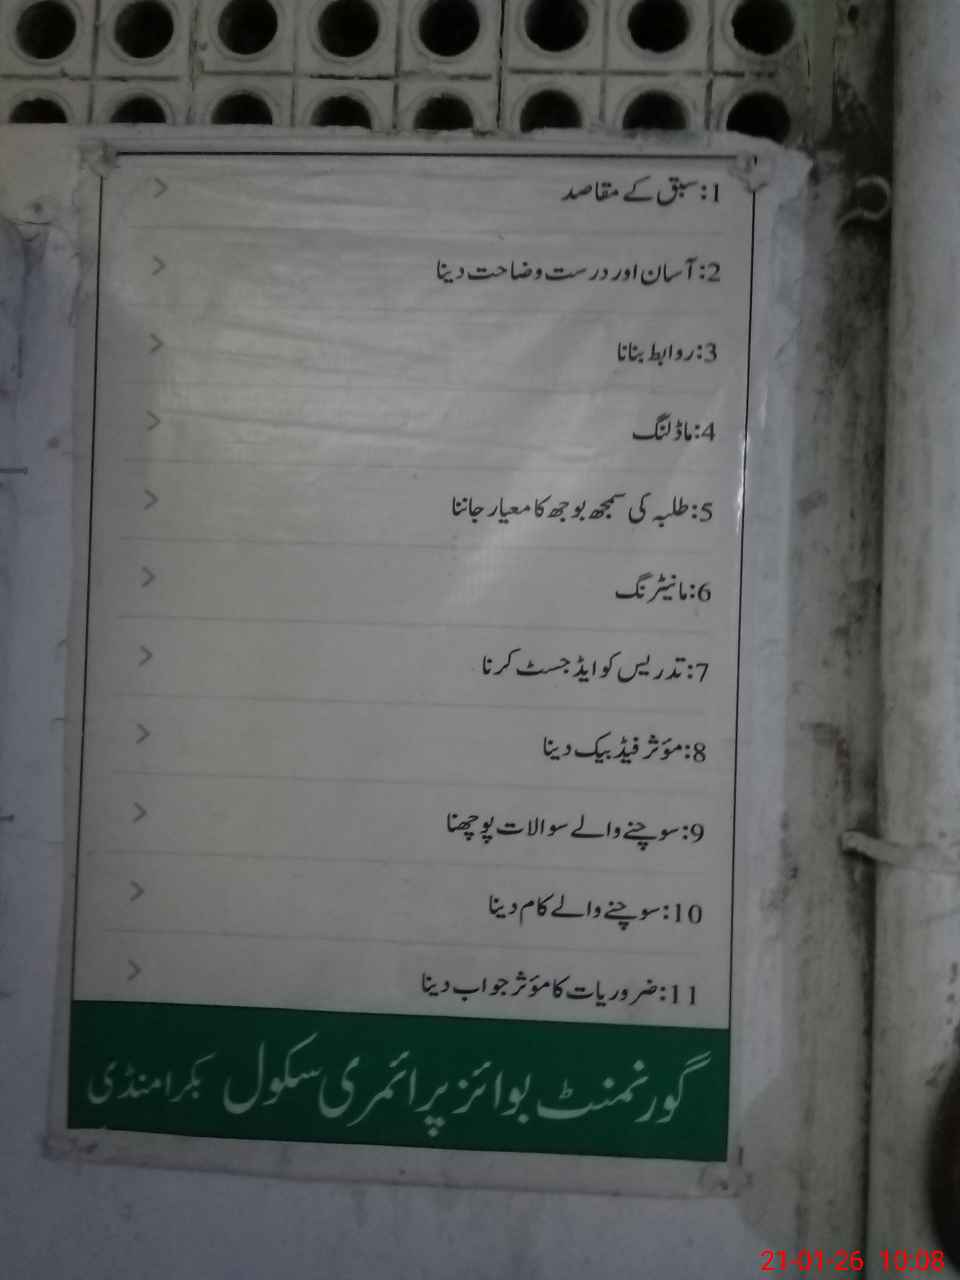 1: سبق کے مقاصد
2: آسان اور درست وضاحت دینا
3: روابط بنانا
4: ماڈلنگ
5: طلبہ کی سمجھ بوجھ کا معیار جاننا
6: مانیٹرنگ
7: تدریس کو ایڈجسٹ کرنا
8: مؤثر فیڈبیک دینا
9: سوچنے والے سوالات پوچھنا
10: سوچنے والے کام دینا
11: ضروریات کا مؤثر جواب دینا
گورنمنٹ بوائز پرائمری سکول بکرا منڈی
21-01-26 10:08